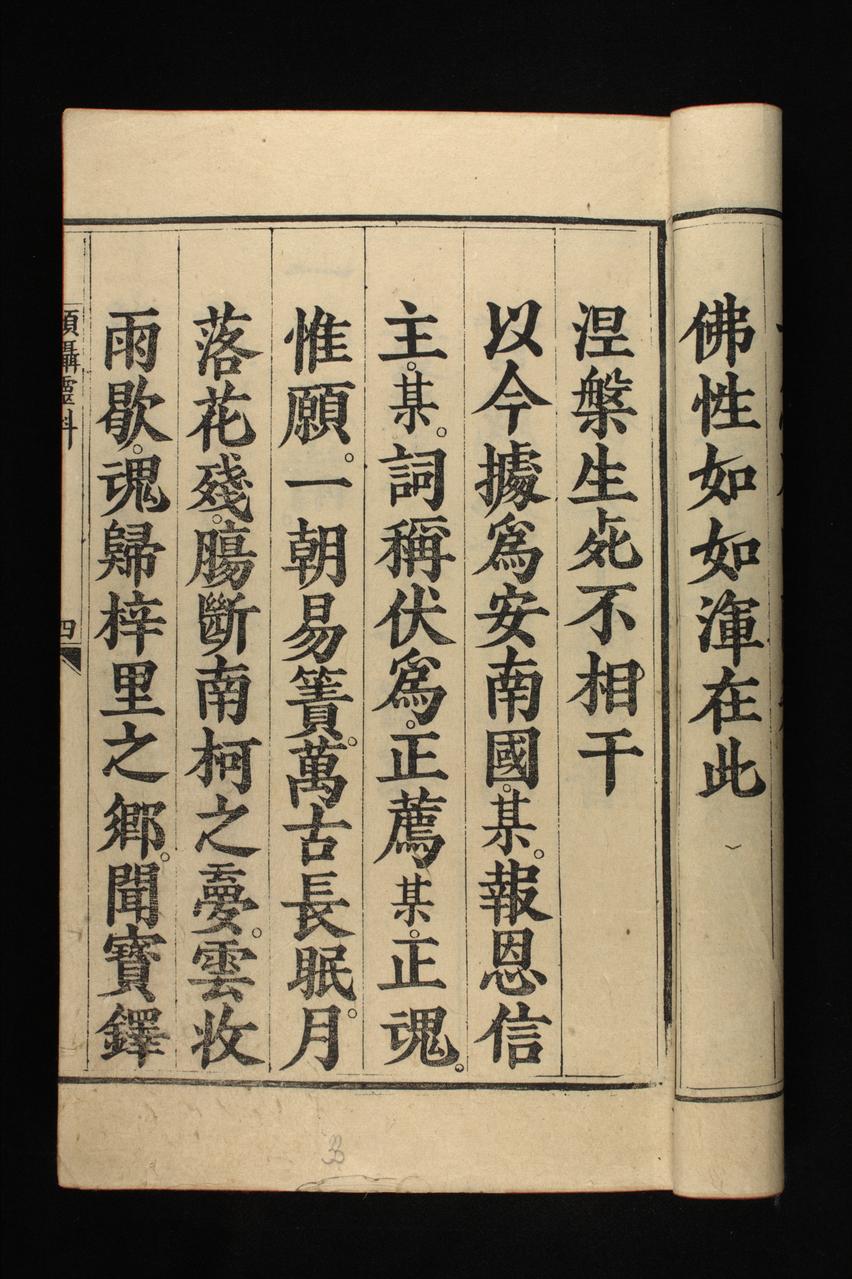 佛性如如渾在此
涅槃生死不相干
以今據爲安南國。某。報恩信
主。某。詞稱伏爲。正薦某。正魂。
惟願。一朝易簀。萬古長眠。月
落花殘。腸斷南柯之夢。雲收
雨歇。魂歸梓里之鄉。聞寶鐸
攝靈科
四